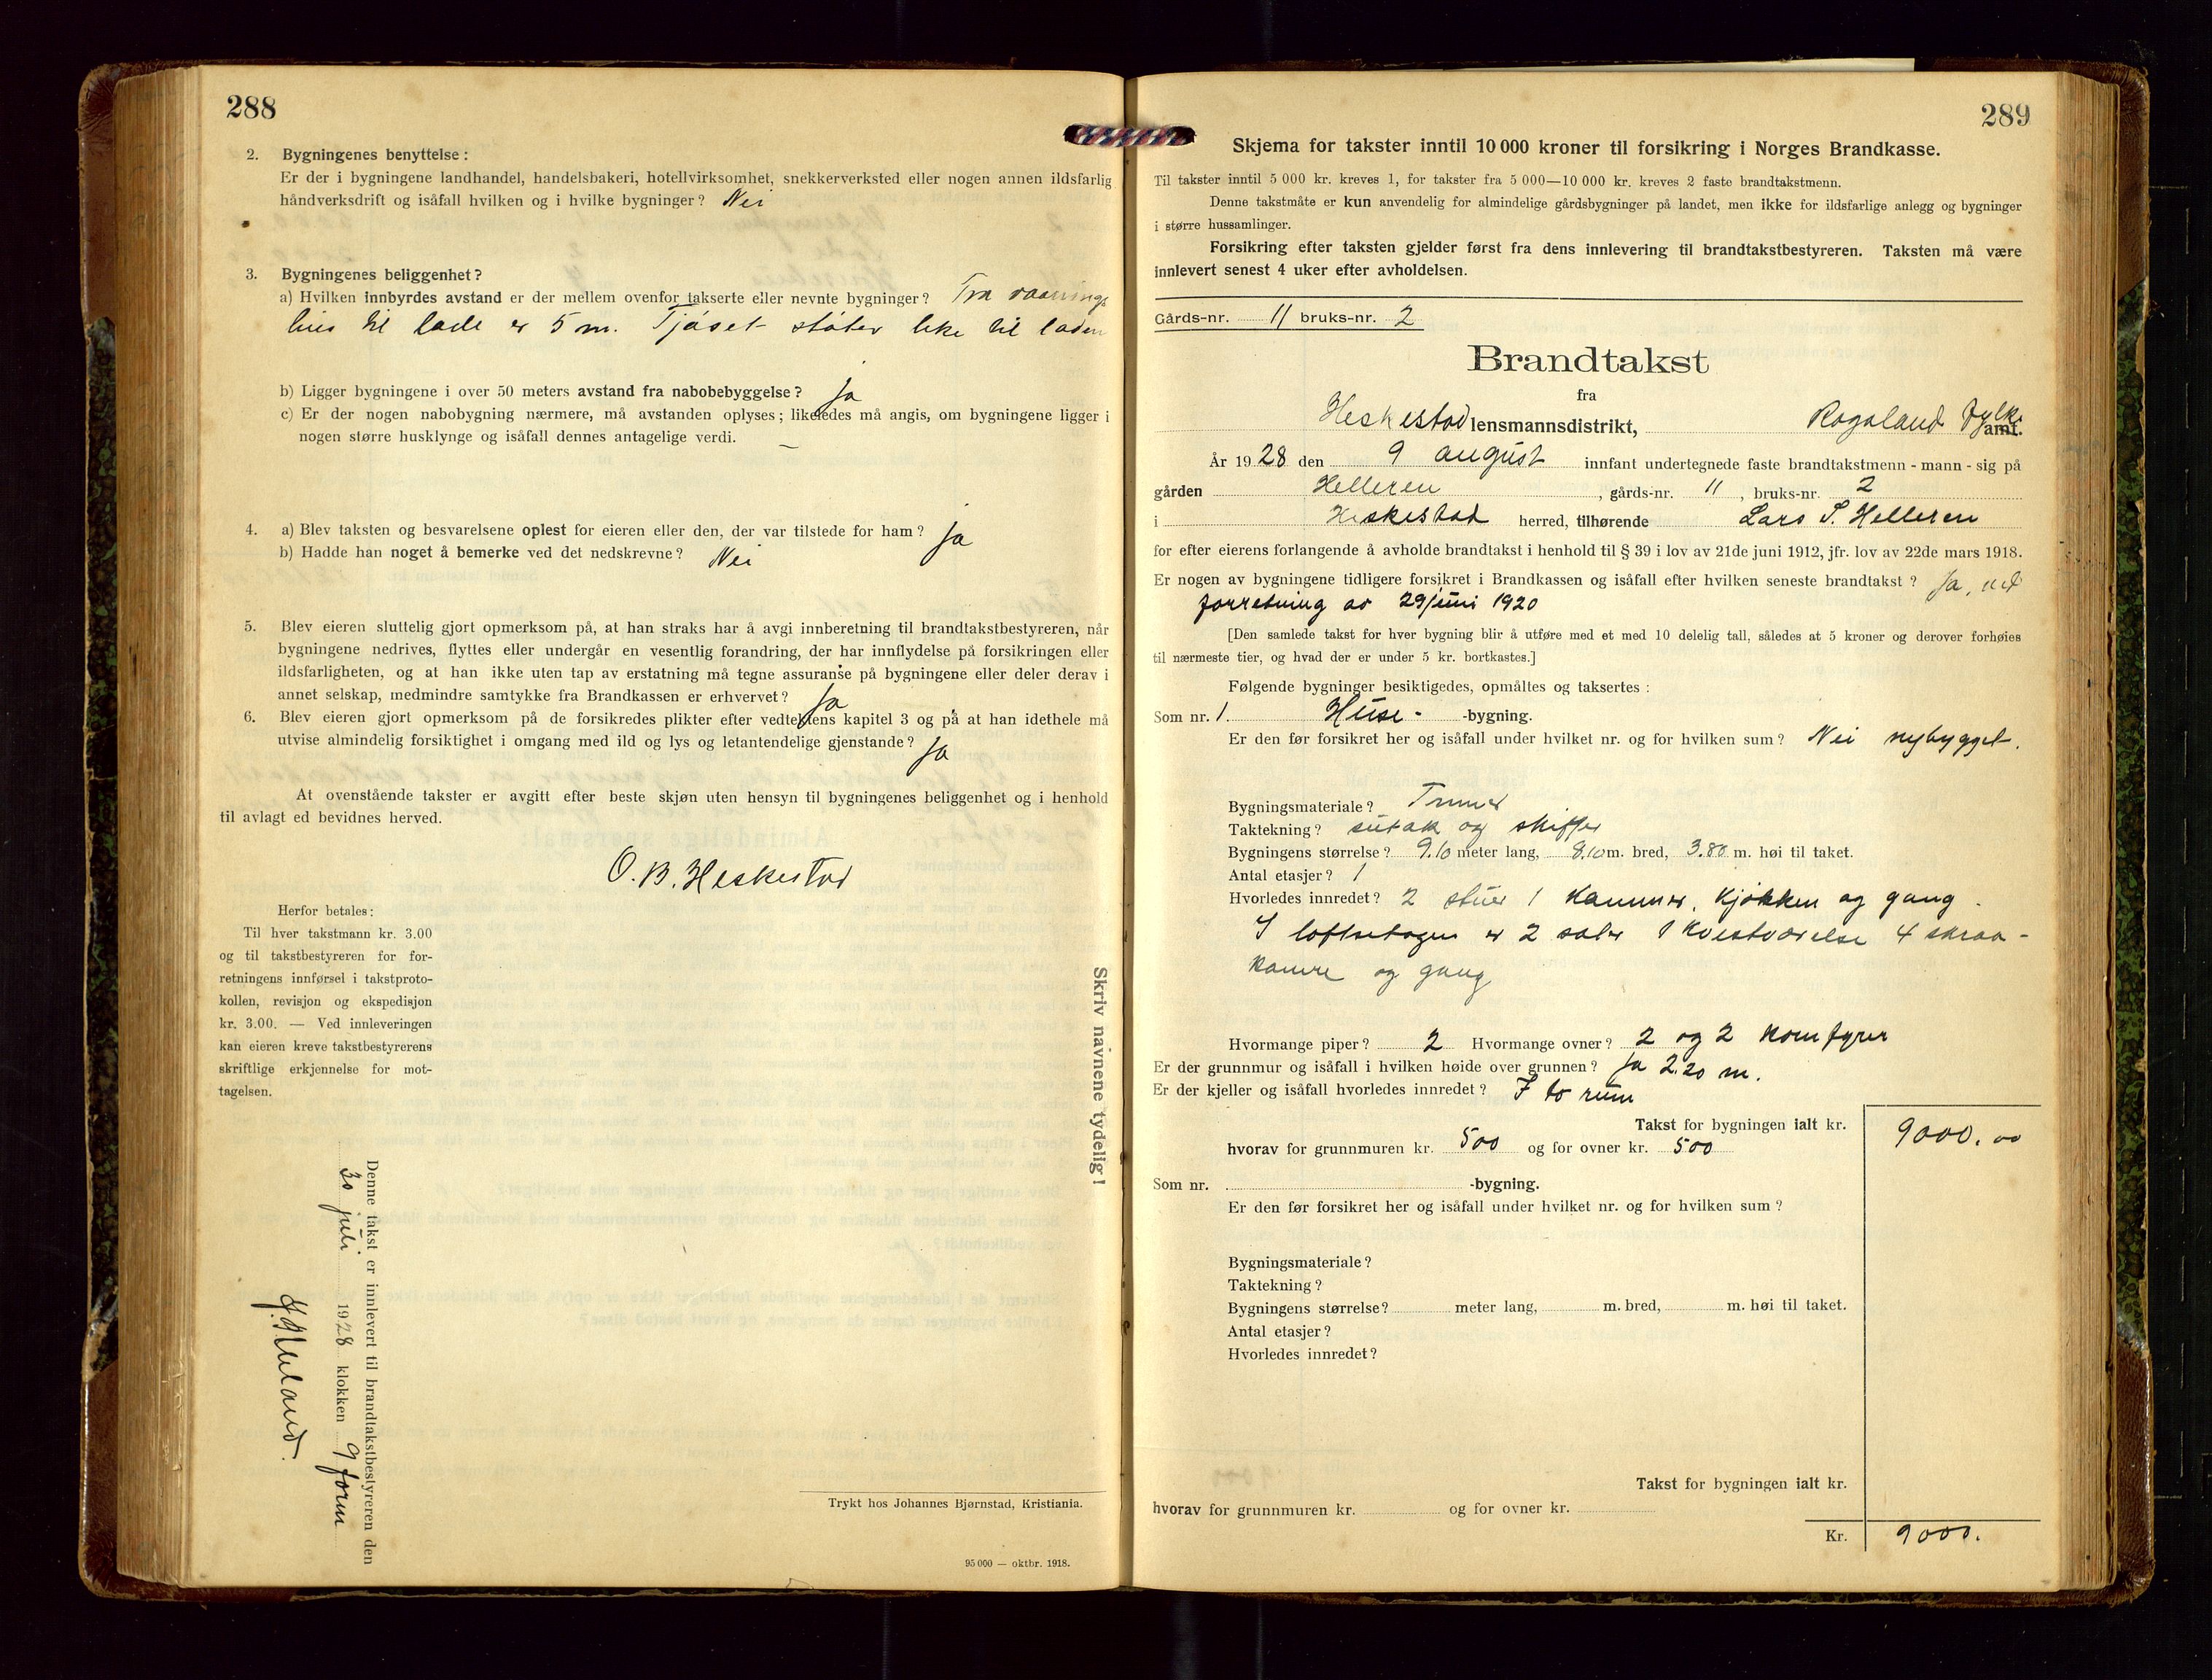 288
2. Bygningenes benyttelse:
Er der i bygningene landhandel, handelsbakeri, hotellvirksomhet, snekkerverksted eller nogen annen ildsfarlig
håndverksdrift og isåfall hvilken og i hvilke bygninger? Nei
3. Bygningenes beliggenhet?
a) Hvilken innbyrdes avstand er der mellem ovenfor takserte eller nevnte bygninger? Fra vaanings
hus til lade er 5 m. Fjøset støter like til laden
b) Ligger bygningene i over 50 meters avstand fra nabobebyggelse? Ja
c) Er der nogen nabobygning nærmere, må avstanden oplyses; likeledes må angis, om bygningene ligger i
nogen større husklynge og isåfall dennes antagelige verdi. —
4. a) Blev taksten og besvarelsene oplest for eieren eller den, der var tilstede for ham? Ja
b) Hadde han noget å bemerke ved det nedskrevne? Nei
5. Blev eieren sluttelig gjort opmerksom på, at han straks har å avgi innberetning til brandtakstbestyreren, når
bygningene nedrives, flyttes eller undergår en vesentlig forandring, der har innflydelse på forsikringen eller
ildsfarligheten, og at han ikke uten tap av erstatning må tegne assuranse på bygningene eller deler derav i
annet selskap, medmindre samtykke fra Brandkassen er erhvervet? Ja
6. Blev eieren gjort opmerksom på de forsikredes plikter efter vedtektens kapitel 3 og på at han idethele må
utvise almindelig forsiktighet i omgang med ild og lys og letantendelige gjenstande? Ja
At ovenstående takster er avgitt efter beste skjøn uten hensyn til bygningenes beliggenhet og i henhold
til avlagt ed bevidnes herved.
O. B. Heskestad
Herfor betales:
Til hver takstmann kr. 3.00
og til takstbestyreren for for-
retningens innførsel i takstproto-
kollen, revisjon og ekspedisjon
kr. 3.00. — Ved innleveringen
kan eieren kreve takstbestyrerens
skriftlige erkjennelse for mot-
tagelsen.
Skriv navnene tydelig!
Denne takst er innlevert til brandtakstbestyreren den
30 juli 1928 klokken 9 form
Trykt hos Johannes Bjørnstad, Kristiania.
95 000 — oktbr. 1918.
289
Skjema for takster inntil 10 000 kroner til forsikring i Norges Brandkasse.
Til takster inntil 5 000 kr. kreves 1, for takster fra 5 000—10 000 kr. kreves 2 faste brandtakstmenn.
Denne takstmåte er kun anvendelig for almindelige gårdsbygninger på landet, men ikke for ildsfarlige anlegg og bygninger
i større hussamlinger.
Forsikring efter taksten gjelder først fra dens innlevering til brandtakstbestyreren. Taksten må være
innlevert senest 4 uker efter avholdelsen.
Gårds-nr. 11 bruks-nr. 2
Brandtakst
fra
Heskestad lensmannsdistrikt, Rogaland fylke amt.
År 1928 den 9 august innfant undertegnede faste brandtakstmenn - mann - sig på
gården Helleren, gårds-nr. 11, bruks-nr. 2
i Heskestad herred, tilhørende Lars S. Helleren
for efter eierens forlangende å avholde brandtakst i henhold til § 39 i lov av 21de juni 1912, jfr. lov av 22de mars 1918.
Er nogen av bygningene tidligere forsikret i Brandkassen og isåfall efter hvilken seneste brandtakst? Ja, ved
forretning av 29/juni 1920
[Den samlede takst for hver bygning blir å utføre med et med 10 delelig tall, således at 5 kroner og derover forhøies
til nærmeste tier, og hvad der er under 5 kr. bortkastes.]
Følgende bygninger besiktigedes, opmåltes og taksertes:
Som nr. 1. Huse- -bygning.
Er den før forsikret her og isåfall under hvilket nr. og for hvilken sum? Nei nybygget.
Bygningsmateriale? Tømmer
Taktekning? sutak og skiffer
Bygningens størrelse? 9.10 meter lang, 8.10 m. bred, 3.80 m. høi til taket.
Antal etasjer? 1
Hvorledes innredet? 2 stuer 1 kammer, kjøkken og gang.
I loftsetagen er 2 saler 1 kvistværelse 4 skraa-
kamre og gang
Hvormange piper? 2 Hvormange ovner? 2 og 2 komfyrer
Er der grunnmur og isåfall i hvilken høide over grunnen? Ja 2.20 m.
Er der kjeller og isåfall hvorledes innredet? I to rum
Takst for bygningen ialt kr. 9000.00
hvorav for grunnmuren kr. 500 og for ovner kr. 500
Som nr. -bygning.
Er den før forsikret her og isåfall under hvilket nr. og for hvilken sum?
Bygningsmateriale?
Taktekning?
Bygningens størrelse? meter lang, m. bred, m. høi til taket.
Antal etasjer?
Hvorledes innredet?
Takst for bygningen ialt kr.
hvorav for grunnmuren kr. og for ovner kr.
Kr. 9000.